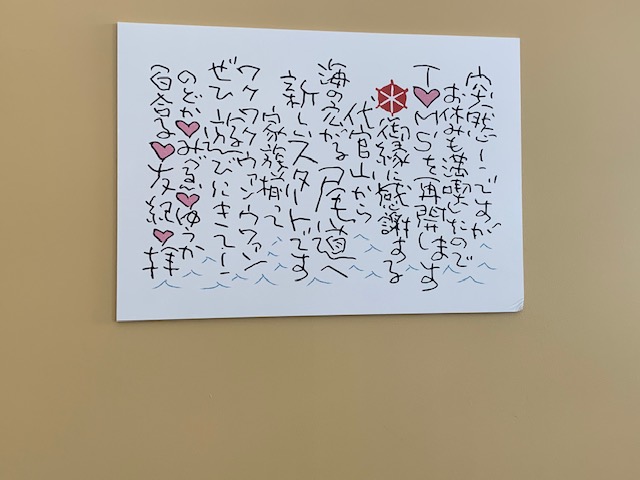 突然ーですが
お休みも満喫したので
T♥MSを再開します
御縁に感謝する
代官山から
海の広がる 尾道へ
新しいスタートです
家族揃って
ワクワクウァンウァン
ぜひ遊びにきてー!
のどか♥みべる♥ゆうか
百合る♥友紀♥拝